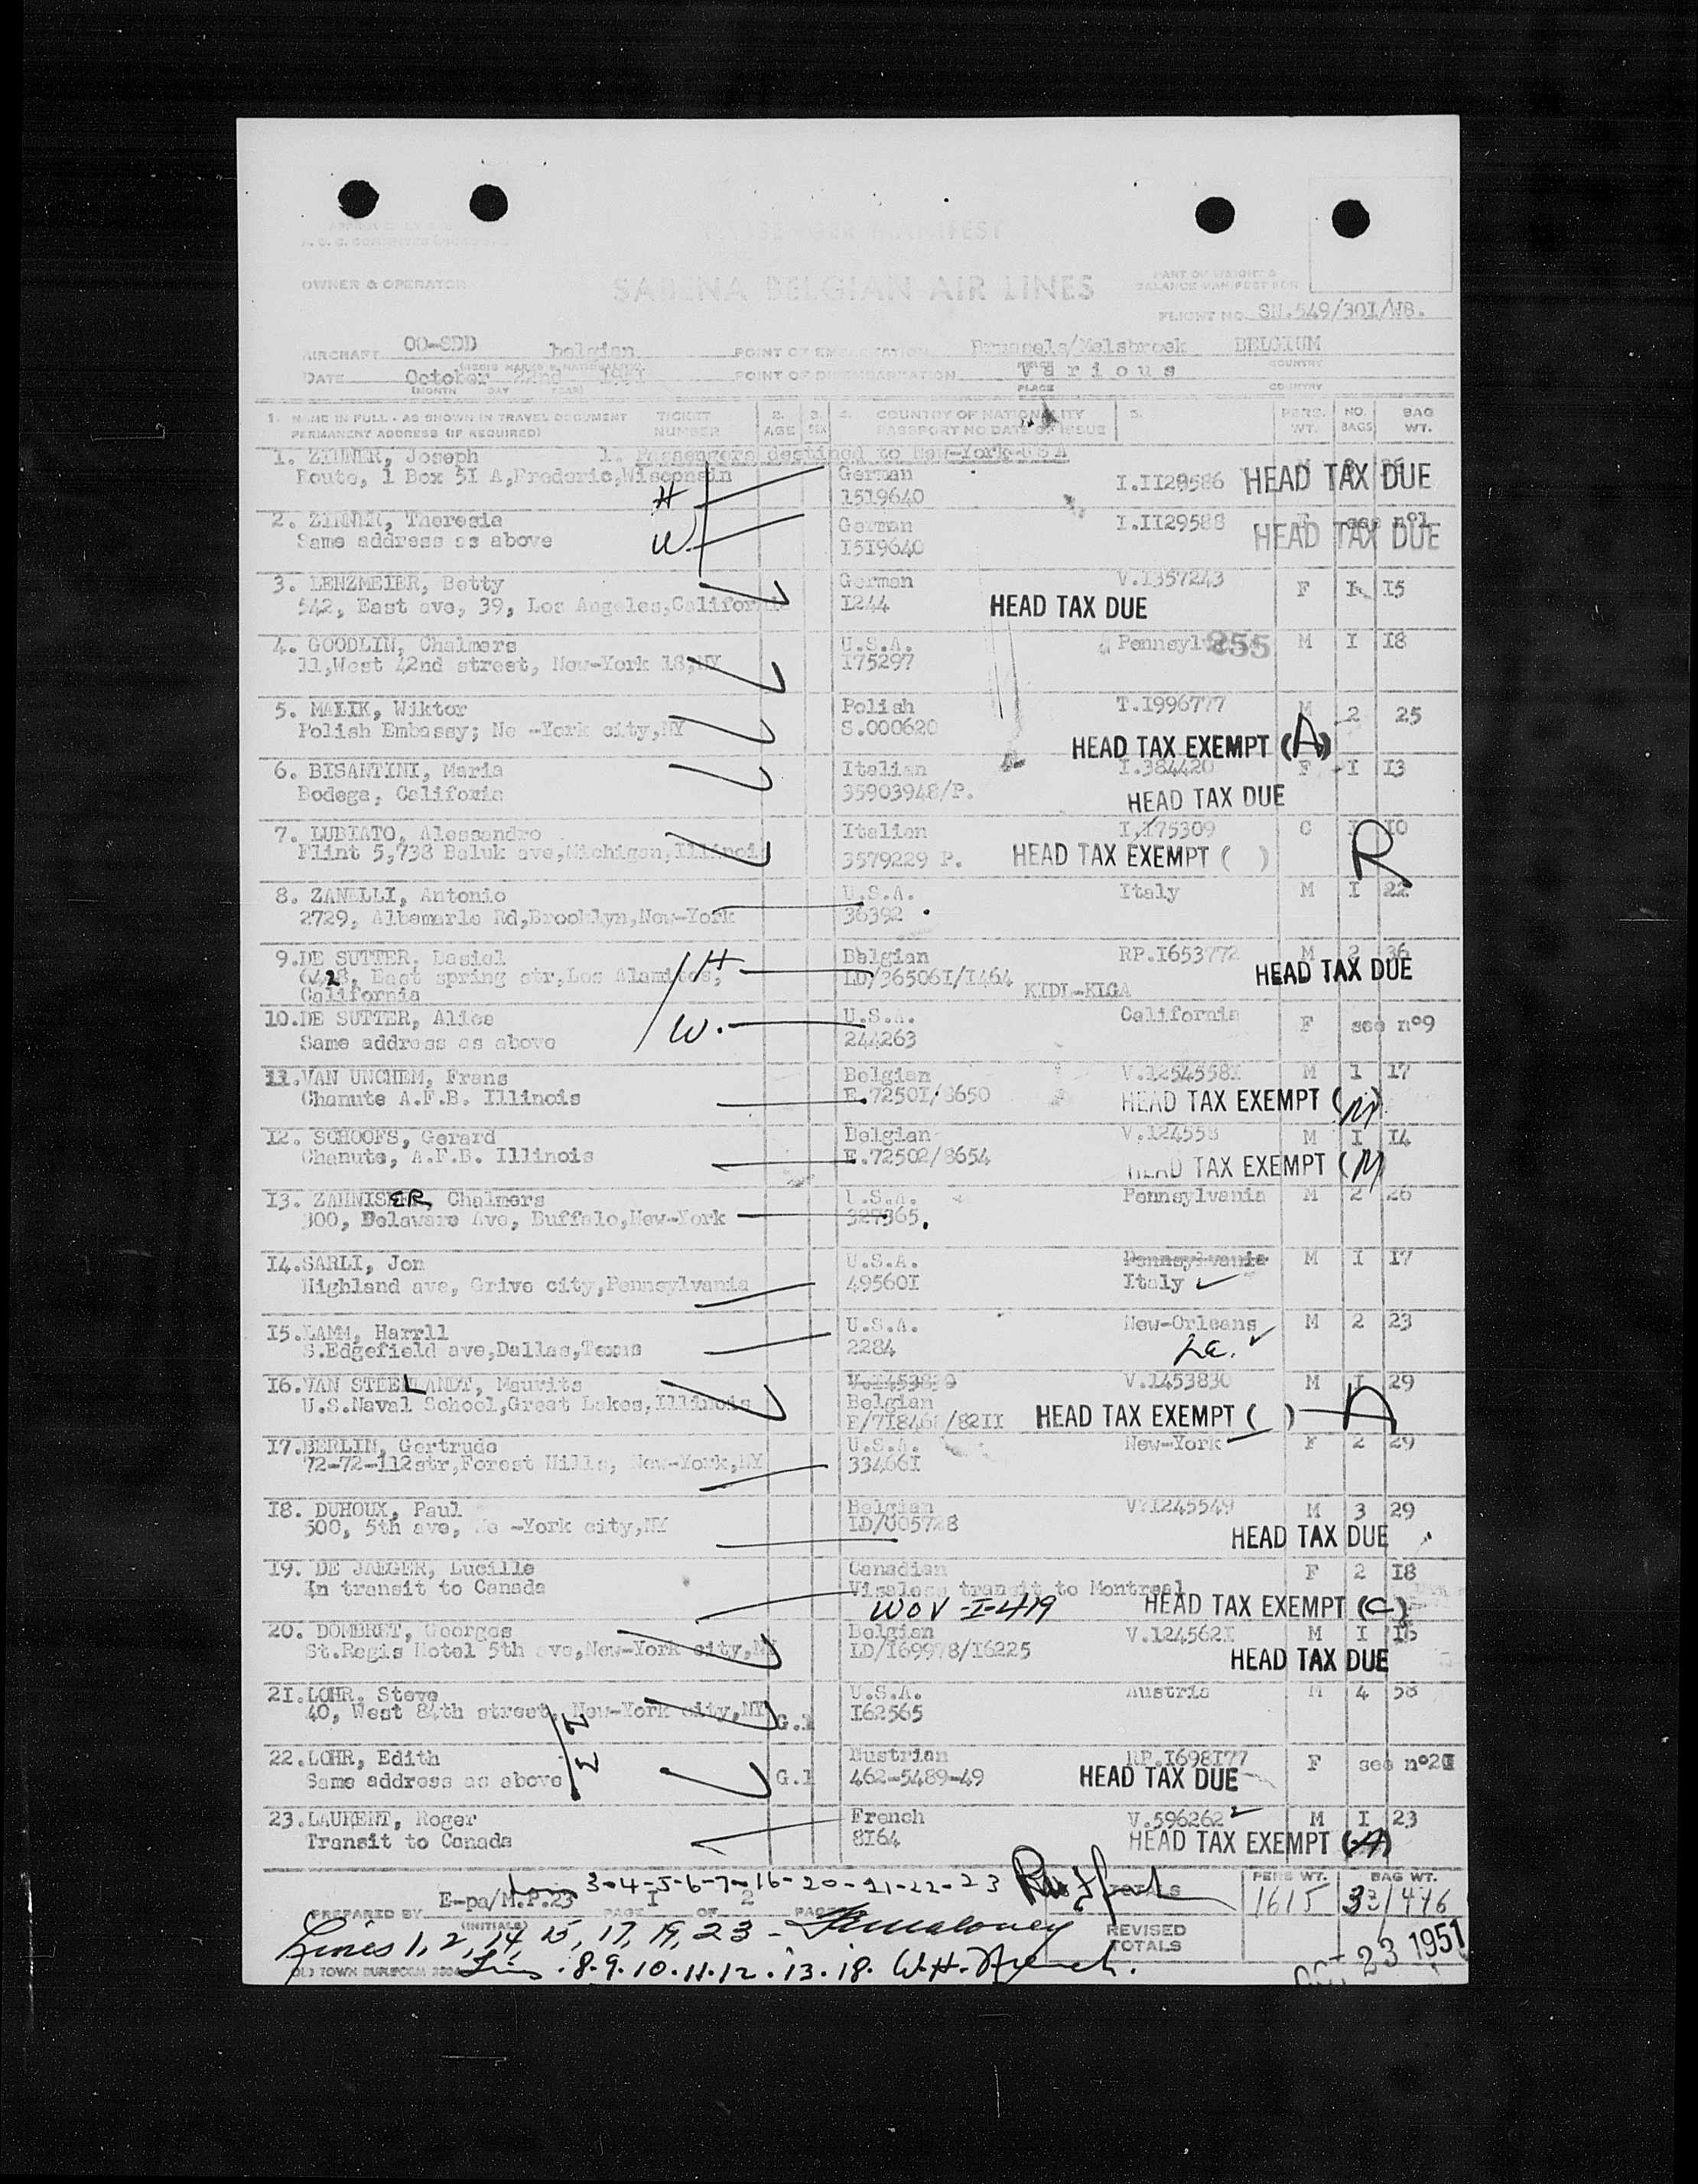 PASSENGER MANIFEST
OWNER & OPERATOR
SABENA BELGIAN AIR LINES
PART OF WEIGHT &
FLIGHT NO. SN.549/30I/WB.
AIRCRAFT OO-SDD belgian POINT OF EMBARKATION Brussels/Melsbroek BELGIUM
COUNTRY
DATE October 22nd 1951 POINT OF DISEMBARKATION Various
(MONTH DAY YEAR) PLACE COUNTRY
1. NAME IN FULL - AS SHOWN IN TRAVEL DOCUMENT TICKET 2. 3. 4. COUNTRY OF NATIONALITY 5. PERS. NO. BAG
PERMANENT ADDRESS (IF REQUIRED) NUMBER AGE SEX PASSPORT NO DATE OF ISSUE WT. BAGS WT.
1. Passengers destined to New-York-USA
1. Joseph German
Route, 1 Box 5I A,Frederic,Wisconsin H 1519640 I.II29586 HEAD TAX DUE
2. Theresia German I.II29588 F see nº1
Same address as above W. I5I9640 HEAD TAX DUE
3. LENZMEIER, Betty German V.I357243 F I I5
542, East ave, 39, Los Angeles, I244 HEAD TAX DUE
4. GOODLIN, Chalmers U.S.A. 855 M I I8
11,West 42nd street, New-York 18,NY I75297
5. MALIK, Wiktor Polish T.I996777 M 2 25
Polish Embassy; Ne -York city,NY S.000620 HEAD TAX EXEMPT (A)
6. BISANTINI, Maria Italian I.384420 F I I3
Bodega, 35903948/P. HEAD TAX DUE
7. LUBIATO, Alessandro Italian I.I75309 C I I0
Flint 5,738 Baluk ave,Michigan,Illinois 3579229 P. HEAD TAX EXEMPT ( ) R
8. ZANELLI, Antonio U.S.A. Italy M I 22
2729, Albemarle Rd,Brooklyn,New-York 36392
9.DE SUTTER, Belgian RP.I653772 M 2 36
East spring str,Los Alamitos, H LD/36506I/I464 KIDL-KLGA HEAD TAX DUE
California
10.DE SUTTER, Alice U.S.A. California F see nº9
Same address as above W. 244263
11.VAN UNCHEM, Frans Belgian V.I254558I M 1 I7
Chanute A.F.B. Illinois E.7250I/8650 HEAD TAX EXEMPT (M)
I2. SCHOOFS, Gerard Belgian V.I24558 M I I4
Chanute, A.F.B. Illinois E.72502/8654 HEAD TAX EXEMPT (M)
I3. ZAHNISER, Chalmers U.S.A. Pennsylvania M 2 26
300, Delaware Ave, Buffalo,New-York 327365.
I4.SARLI, Jon U.S.A. Pennsylvania M I I7
Highland ave, Grive city,Pennsylvania 49560I Italy
I5.LAMM, Harrll U.S.A. New-Orleans M 2 23
S.Edgefield ave,Dallas,Texas 2284 La.
I6.VAN STEELANDT, Maurits V.I453830 V.I453830 M I 29
U.S.Naval School,Great Lakes,Illinois Belgian
HEAD TAX EXEMPT ( ) A
I7.BERLIN, Gertrude U.S.A. New-York F 2 29
72-72-112str,Forest Hills, New-York,NY 33466I
I8. DUHOUX, Paul Belgian V?I245549 M 3 29
500, 5th ave, -York city,NY LD/005728 HEAD TAX DUE
I9. DE JAEGER, Lucille Canadian F 2 I8
In transit to Canada Visaless transit to Montreal
WOV-I-419 HEAD TAX EXEMPT (C)
20. DOMBRET, Georges Belgian V.I24562I M I I6
St.Regis Hotel 5th ave,New-York city,NY LD/I69978/I6225 HEAD TAX DUE
2I.LOHR, Steve U.S.A. Austria M 4 58
40, West 84th street, New-York city,NY G.I I62565
22.LOHR, Edith Austrian RP.I698I77 F see nº20
Same address as above G.I 462-5489-49 HEAD TAX DUE
23.LAURENT, Roger French V.596262 M I 23
Transit to Canada 8I64 HEAD TAX EXEMPT (A)
3-4-5-6-7-16-20-21-22-23 TOTALS PERS WT. BAG WT.
E-pa/M.P.23 1615 33/476
PREPARED BY (INITIALS) PAGE I OF 2 PAGES
Lines 1, 2, 14, 15, 17, 19, 23 - REVISED TOTALS
8.9.10.11.12.13.18. W.H. French.
OCT 23 1951